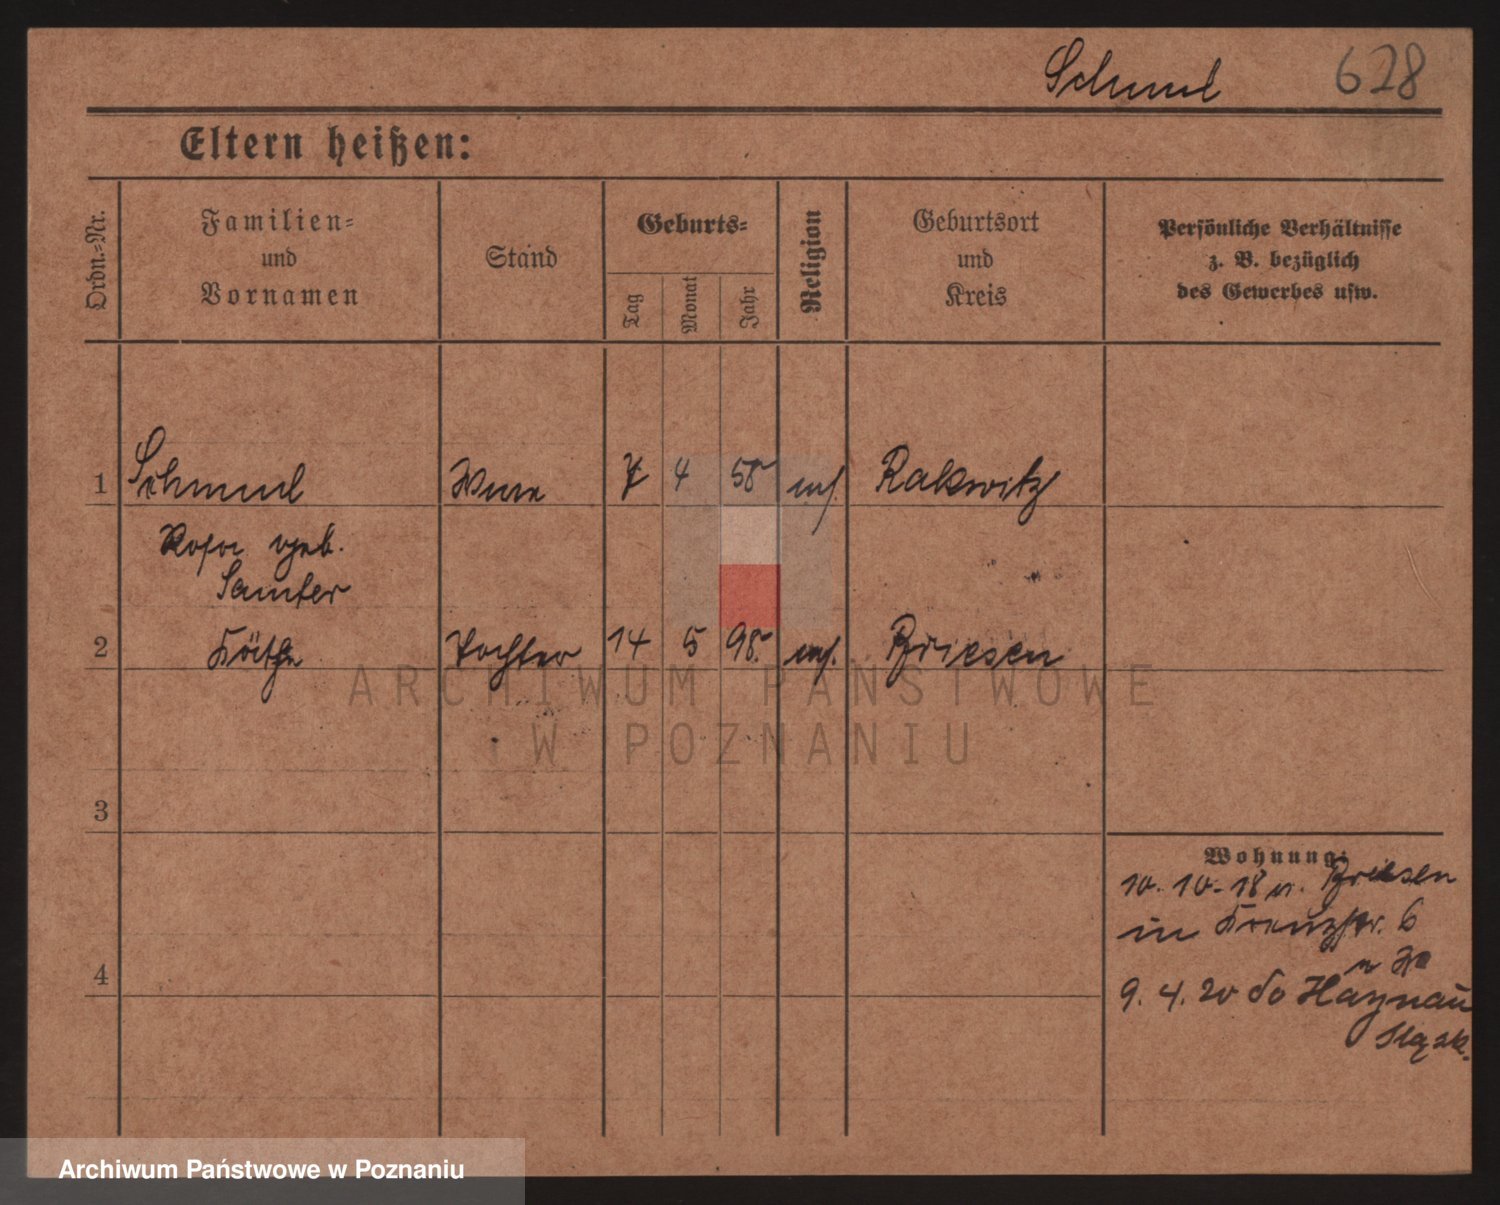 Schmul 628
Eltern heißen:
Ordn.=Nr.
Familien=
und
Vornamen
Stand
Geburts=
Tag
Monat
Jahr
Religion
Geburtsort
und
Kreis
Persönliche Verhältnisse
z. B. bezüglich
des Gewerbes usw.
1 Schmul Wwe 7 4 58 Rakwitz
Rosa geb.
Samter
2 Käthe Tochter 14 5 98 Briesen
3
4
Wohnung:
10. 10. 18 v. Briesen
in Kreuzstr. 6
9. 4. 20 do Haynau
Sląsk.
ARCHIWUM PAŃSTWOWE
W POZNANIU
Archiwum Państwowe w Poznaniu